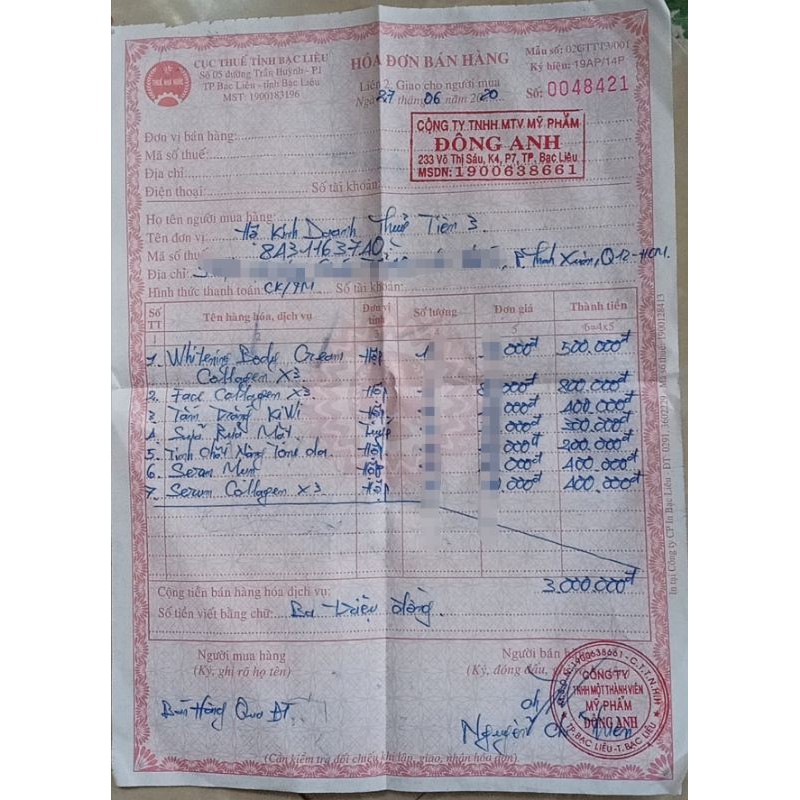 CỤC THUẾ TỈNH BẠC LIÊU
Số 05 đường Trần Huỳnh - P.1
TP Bạc Liêu - tỉnh Bạc Liêu
MST: 1900183196
THUẾ NHÀ NƯỚC
HÓA ĐƠN BÁN HÀNG
Liên 2: Giao cho người mua
Ngày 27 tháng 06 năm 2020
Mẫu số: 02GTTT3/001
Ký hiệu: 19AP/14P
Số: 0048421
Đơn vị bán hàng:
Mã số thuế:
Địa chỉ:
Điện thoại: Số tài khoản:
CÔNG TY TNHH MTV MỸ PHẨM
ĐÔNG ANH
233 Võ Thị Sáu, K4, P7, TP. Bạc Liêu
MSDN: 1900638661
Họ tên người mua hàng:
Tên đơn vị: Hộ Kinh Doanh Thuỷ Tiên 3
Mã số thuế: 8431163740
Địa chỉ: P. Thạnh Xuân, Q12-HCM.
Hình thức thanh toán: CK/TM Số tài khoản:
Số TT Tên hàng hóa, dịch vụ Đơn vị tính Số lượng Đơn giá Thành tiền
1 5 6=4x5
1. Whitening Body Cream Hộp 1 000đ 500.000đ
Collagen X3
2. Face Collagen X3 Hộp 000đ 800.000đ
3 Tắm Trắng KiWi Hộp 000đ 400.000đ
4 Sữa Rửa Mặt Tuýp 000đ 300.000đ
5. Tinh Chất Nâng Tone da Hộp 000đ 200.000đ
6. Serum Mụn Hộp 000đ 400.000đ
7. Serum Collagen X3 Hộp 000đ 400.000đ
Cộng tiền bán hàng hóa dịch vụ: 3.000.000đ
Số tiền viết bằng chữ: Ba Triệu đồng.
Người mua hàng
(Ký, ghi rõ họ tên)
Bán Hàng Qua ĐT.
Người bán hàng
(Ký, đóng dấu,
Nguyễn
M.S.D.N: 1900638661 - C.T.T.N.H.H
CÔNG TY
TNHH MỘT THÀNH VIÊN
MỸ PHẨM
ĐÔNG ANH
TP. BẠC LIÊU - T. BẠC LIÊU
(Cần kiểm tra đối chiếu khi lập, giao, nhận hóa đơn)
In tại Công ty CP In Bạc Liêu - ĐT: 0291. 3602229 - Mã số thuế: 1900128413